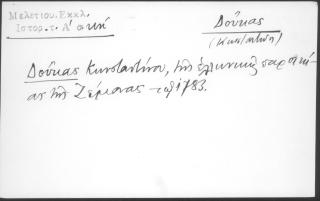 Μελετίου.Εκκλ.
Ιστορ.τ. Α' σελ ή
Δούκας
(Κωνσταντῖνος)
Δούκας Κωνσταντῖνος, τῆς ἑλληνικῆς παροικί-
ας τῆς Ζέμονας τοῦ 1783.